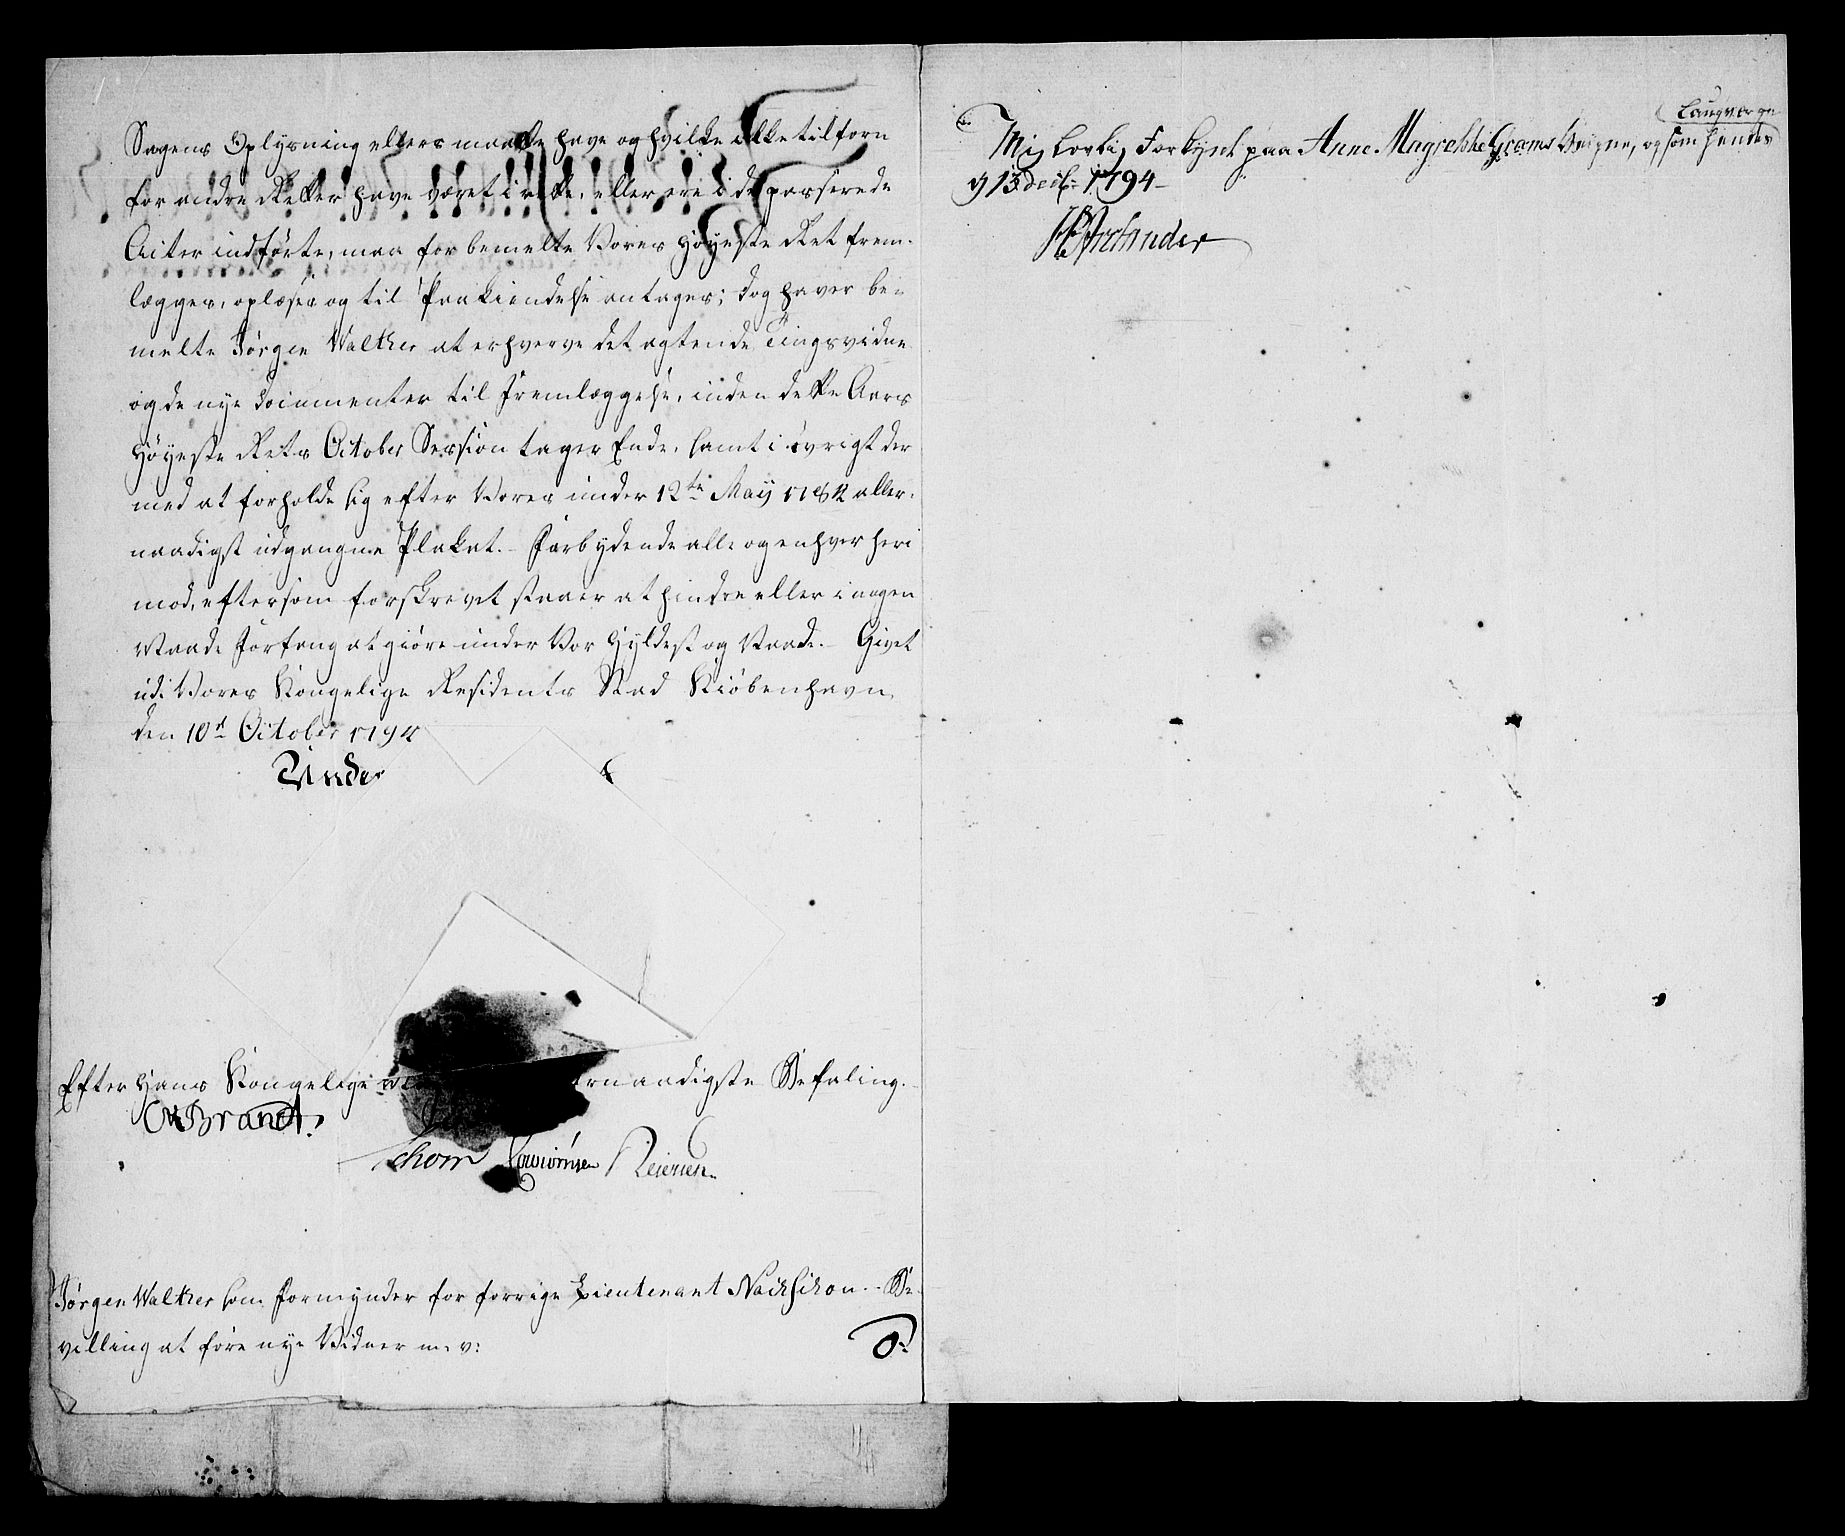 Sagens Oplysning ellers maatte have og hvilke ikke tilforn
for andre Retter have været i rette, eller ere i de passerede
Acter indførte, maa for bemelte Vores Høyeste Ret frem-
lægges, oplæses og til Paakiendelse antages; dog haver be-
melte Jørgen Walther at erhverve det agtende Tingsvidne
og de nye Documenter til Fremlæggelse, inden dette Aars
Høyeste Rets October Session tager Ende, samt i øvrigt der
med at forholde sig efter Vores under 12te May aller-
naadigst udgangne Plakat. Forbydende alle og enhver heri
mod, eftersom forskrevet staaer at hindre eller i nogen
Maade Forfang at giøre under Vor Hyldest og Naade. Givet
udi Vores Kongelige Residents Stad Kiøbenhavn,
den 10d October 1794
Under
Efter Hans Kongelige rnaadigste Befaling.
Brandt.
Schow Reiersen
Jørgen Walther som Formynder for forrige Lieutenant - Be-
villing at føre nye Vidner m. v:
Laugværge
Mig lovlig Forkynt paa Anne Magrethe Grams Veigne, og som hendes
d 13 decb: 1794